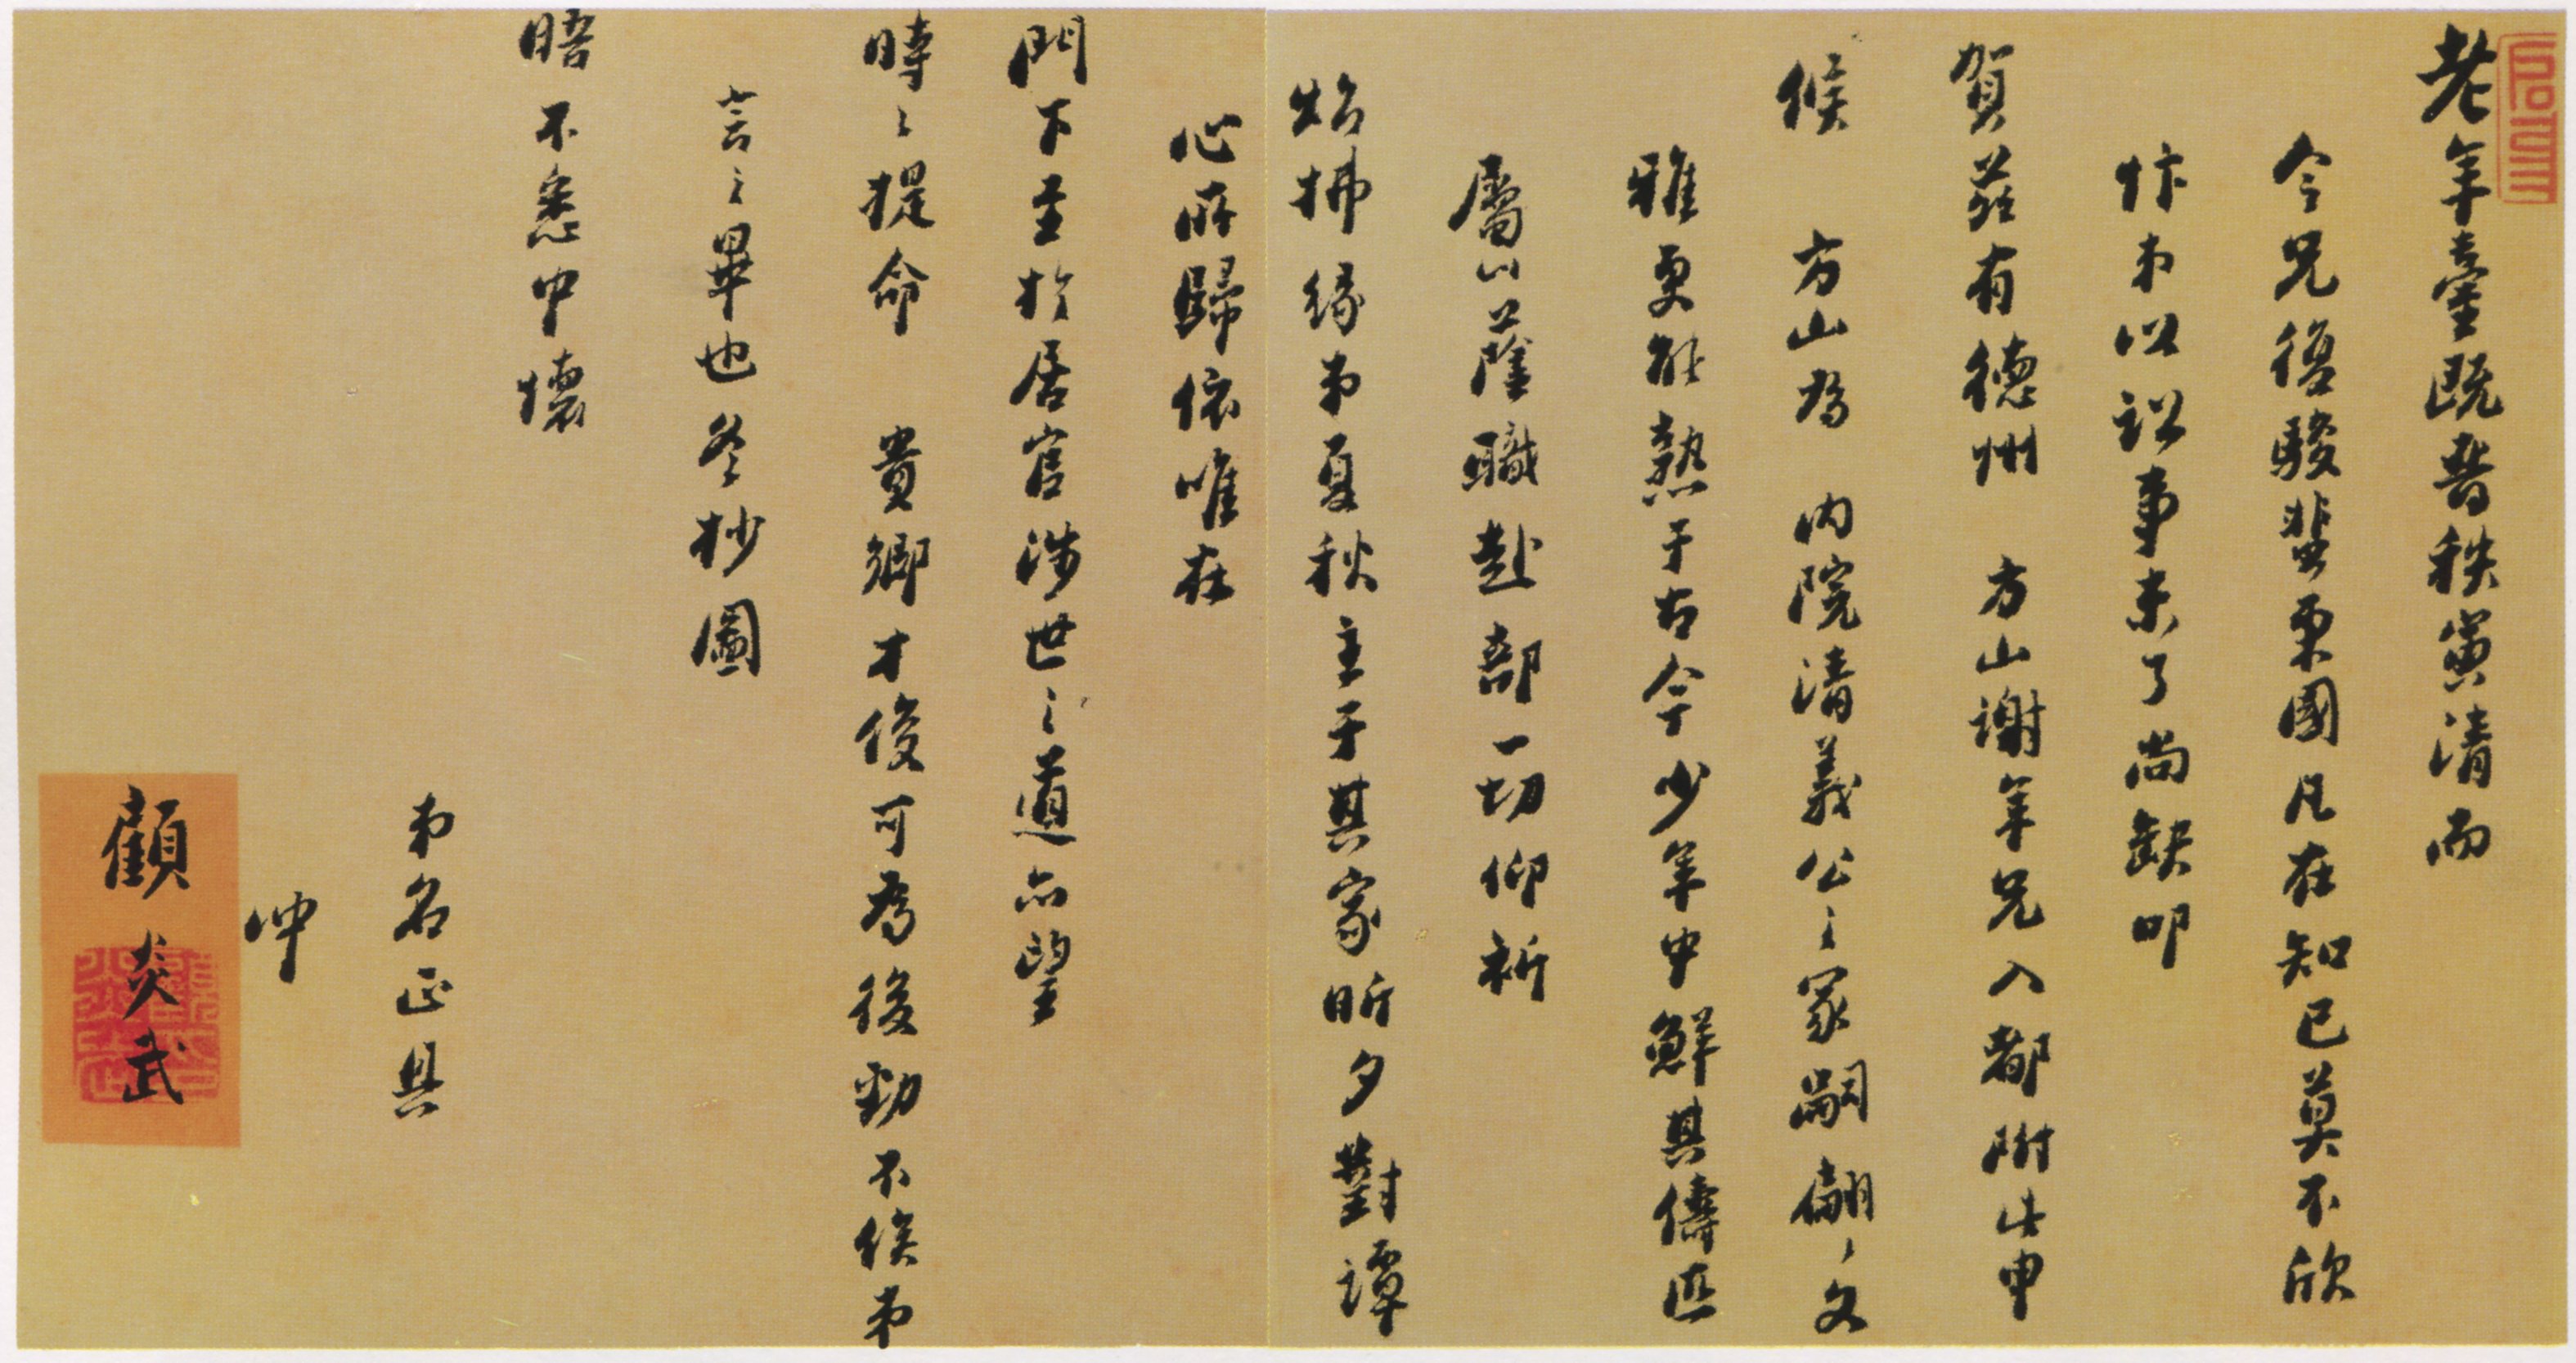 老年臺既晉秩寅清而
令兄復駿蜚東國凡在知己莫不欣
忭弟以訟事未了尚缺叩
賀茲有德州　方山謝年兄入都附此申
候　方山為　內院清義公之冢嗣翩〻文
雅更能熟于古今少年中鮮其儔匹
屬以蔭職赴部一切仰祈
炤拂緣弟夏秋主于其家昕夕對譚
心所歸依唯在
門下至於居官涉世之道亦望
時〻提命　貴鄉才俊可為後勁不俟弟
言之畢也冬抄圖
晤不悉中懷
弟名正具
沖
顧炎武